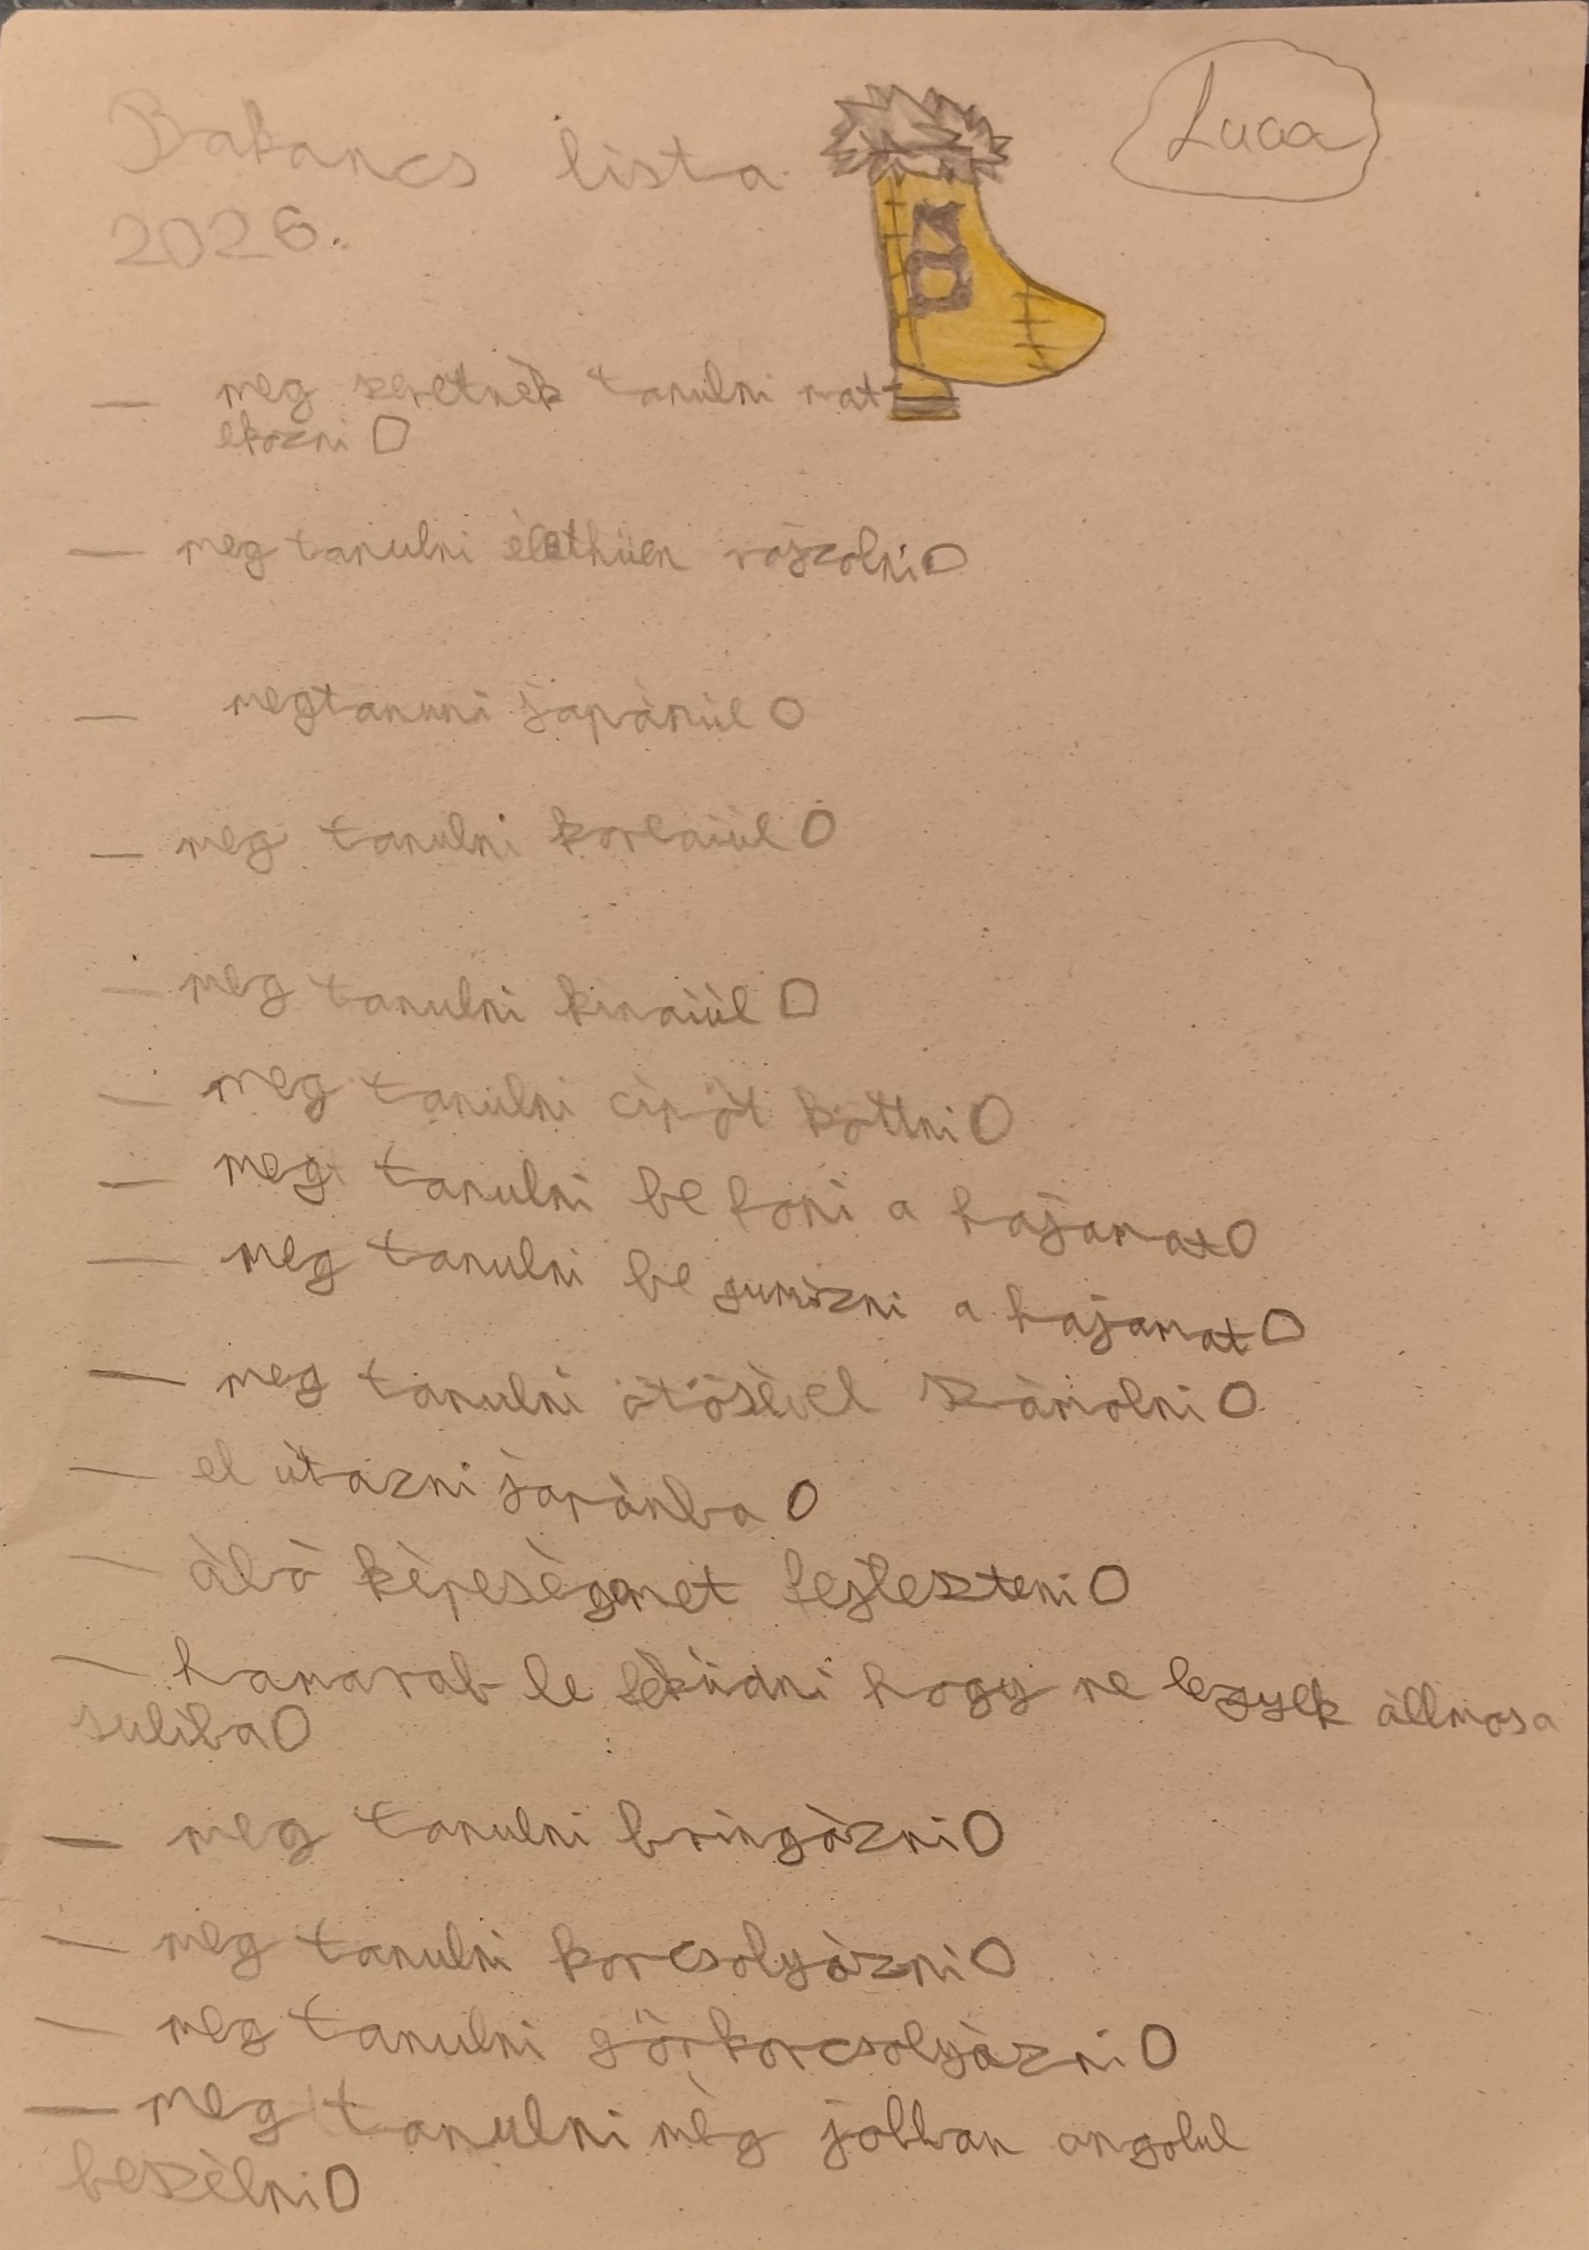 Bakancs lista
Luca
2026.
— meg szeretnèk tanulni mat-
ekozni
— meg tanulni èlethüen rajzolni
— megtanuni japànül
— meg tanulni koreaiül
— meg tanulni kinaiül
— meg tanulni cipöt kötni
— meg tanulni be foni a hajamat
— meg tanulni be gumizni a hajamat
— meg tanulni ötösèvel szàmolni
— el ùtazni japànba
— àlò kèpesègemet fejleszteni
— hamarab le feküdni hogy ne legyek àllmosa
suliba
— meg tanulni bringàzni
— meg tanulni korcsolyàzni
— meg tanulni görkorcsolyàzni
— meg tanulni mèg jobban angolul
beszèlni